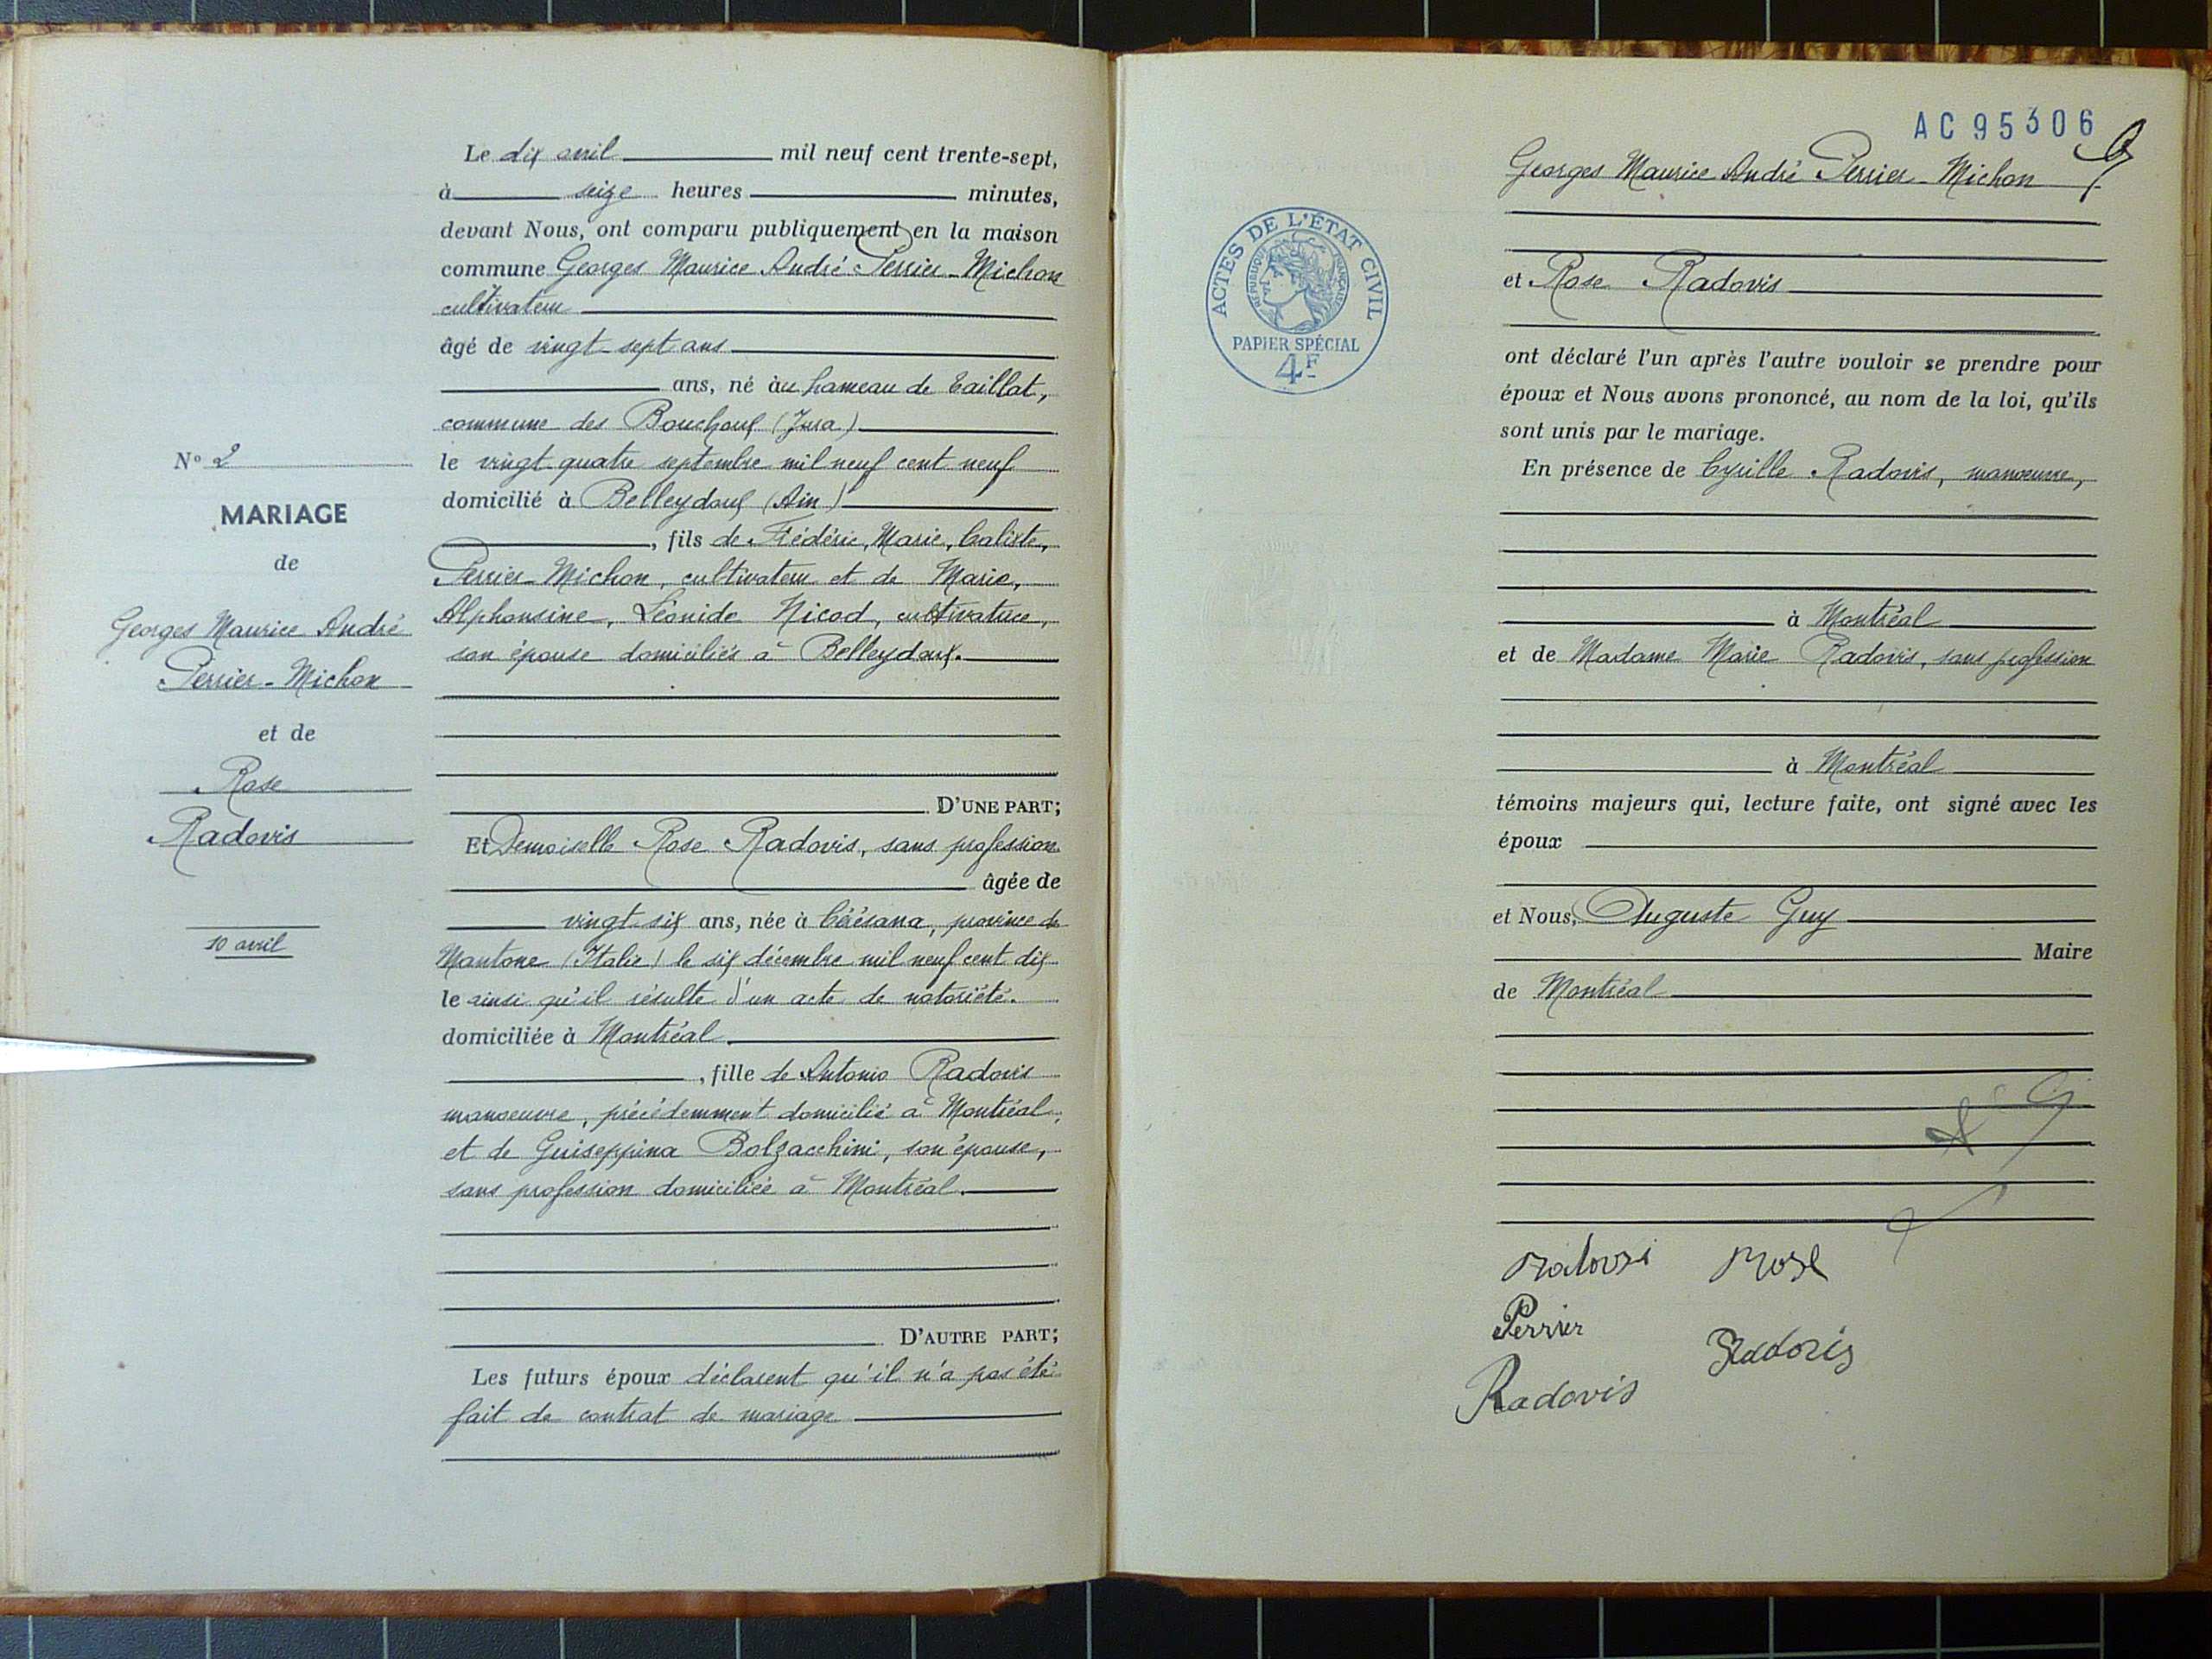 Le dix avril mil neuf cent trente-sept,
à seize heures minutes,
devant Nous, ont comparu publiquement en la maison
commune Georges Maurice André Perrier-Michon
cultivateur
âgé de vingt-sept ans
ans, né au hameau de Taillat,
commune des Bouchoux (Jura)
le vingt-quatre septembre mil neuf cent neuf
domicilié à Belleydoux (Ain)
, fils de Frédéric, Marie, Calixte,
Perrier-Michon, cultivateur et de Marie,
Alphonsine, Léonide Nicod, cultivatrice,
son épouse domiciliés à Belleydoux.
D'UNE PART;
Et Demoiselle Rose Radovis, sans profession
âgée de
vingt-six ans, née à Cérésara, province de
Mantone (Italie) le six décembre mil neuf cent dix
le ainsi qu'il résulte d'un acte de notoriété.
domiciliée à Montréal
, fille de Antonio Radovis
manoeuvre, précédemment domicilié à Montréal,
et de Guiseppina Bolzacchini, son épouse,
sans profession domiciliée à Montréal.
D'AUTRE PART;
Les futurs époux déclarent qu'il n'a pas été
fait de contrat de mariage
N° 2
MARIAGE
de
Georges Maurice André
Perrier-Michon
et de
Rose
Radovis
10 avril
AC 95306
Georges Maurice André Perrier-Michon
et Rose Radovis
ont déclaré l'un après l'autre vouloir se prendre pour
époux et Nous avons prononcé, au nom de la loi, qu'ils
sont unis par le mariage.
En présence de Cyrille Radovis, manoeuvre,
à Montréal
et de Madame Marie Radovis, sans profession
à Montréal
témoins majeurs qui, lecture faite, ont signé avec les
époux
et Nous, Auguste Guy
Maire
de Montréal
ACTES DE L'ÉTAT CIVIL
RÉPUBLIQUE FRANÇAISE
PAPIER SPÉCIAL
4F
Radovsi Rose
Perrier
Radovis
Radovis